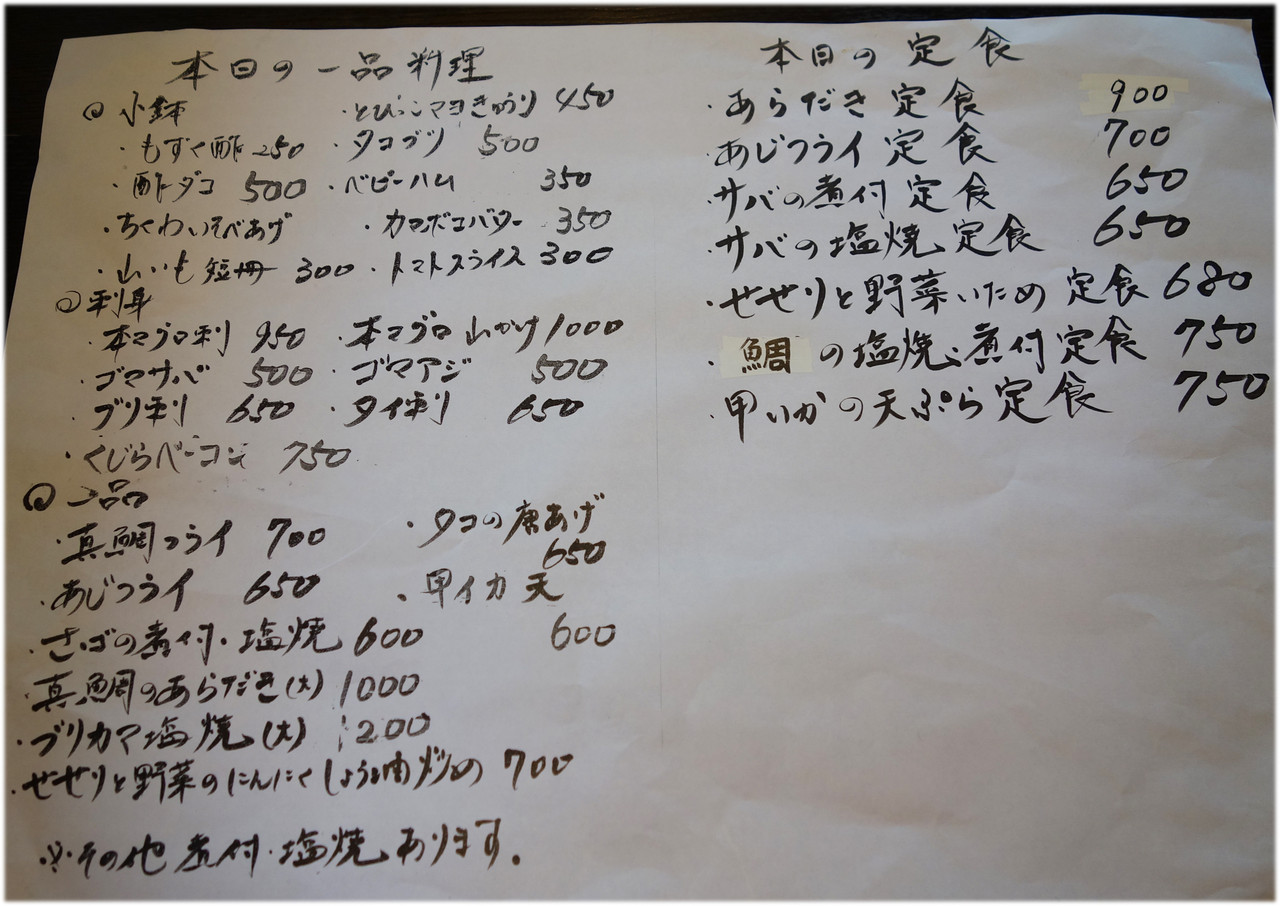 本日の一品料理
◎小鉢
・とびっこマヨきゅうり 450
・もずく酢 250
・タコブツ 500
・酢ダコ 500
・ベビーハム 350
・ちくわいそべあげ
・カマボコバター 350
・山いも短冊 300
・トマトスライス 300
◎刺身
・本マグロ刺 950
・本マグロ山かけ 1000
・ゴマサバ 500
・ゴマアジ 500
・ブリ刺 650
・タイ刺 650
・くじらベーコン 750
◎一品
・真鯛フライ 700
・タコの唐あげ
650
・あじフライ 650
・甲イカ天
600
・さばの煮付・塩焼 600
・真鯛のあらだき(大) 1000
・ブリカマ塩焼(大) 1200
・せせりと野菜のにんにくしょうゆ油炒め 700
※その他煮付・塩焼あります。
本日の定食
・あらだき定食 900
・あじフライ定食 700
・サバの煮付定食 650
・サバの塩焼定食 650
・せせりと野菜いため定食 680
・鯛の塩焼・煮付定食 750
・甲いかの天ぷら定食 750